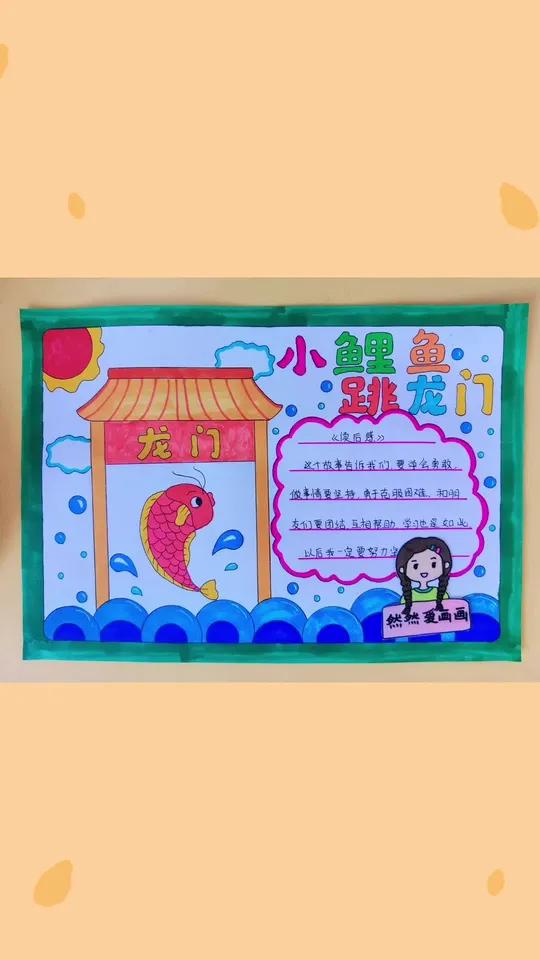 小鲤鱼
跳龙门
龙门
《读后感》
这个故事告诉我们,要学会勇敢,
做事情要坚持,勇于克服困难,和朋
友们要团结,互相帮助,学习也是如此,
以后我一定要努力
然然爱画画